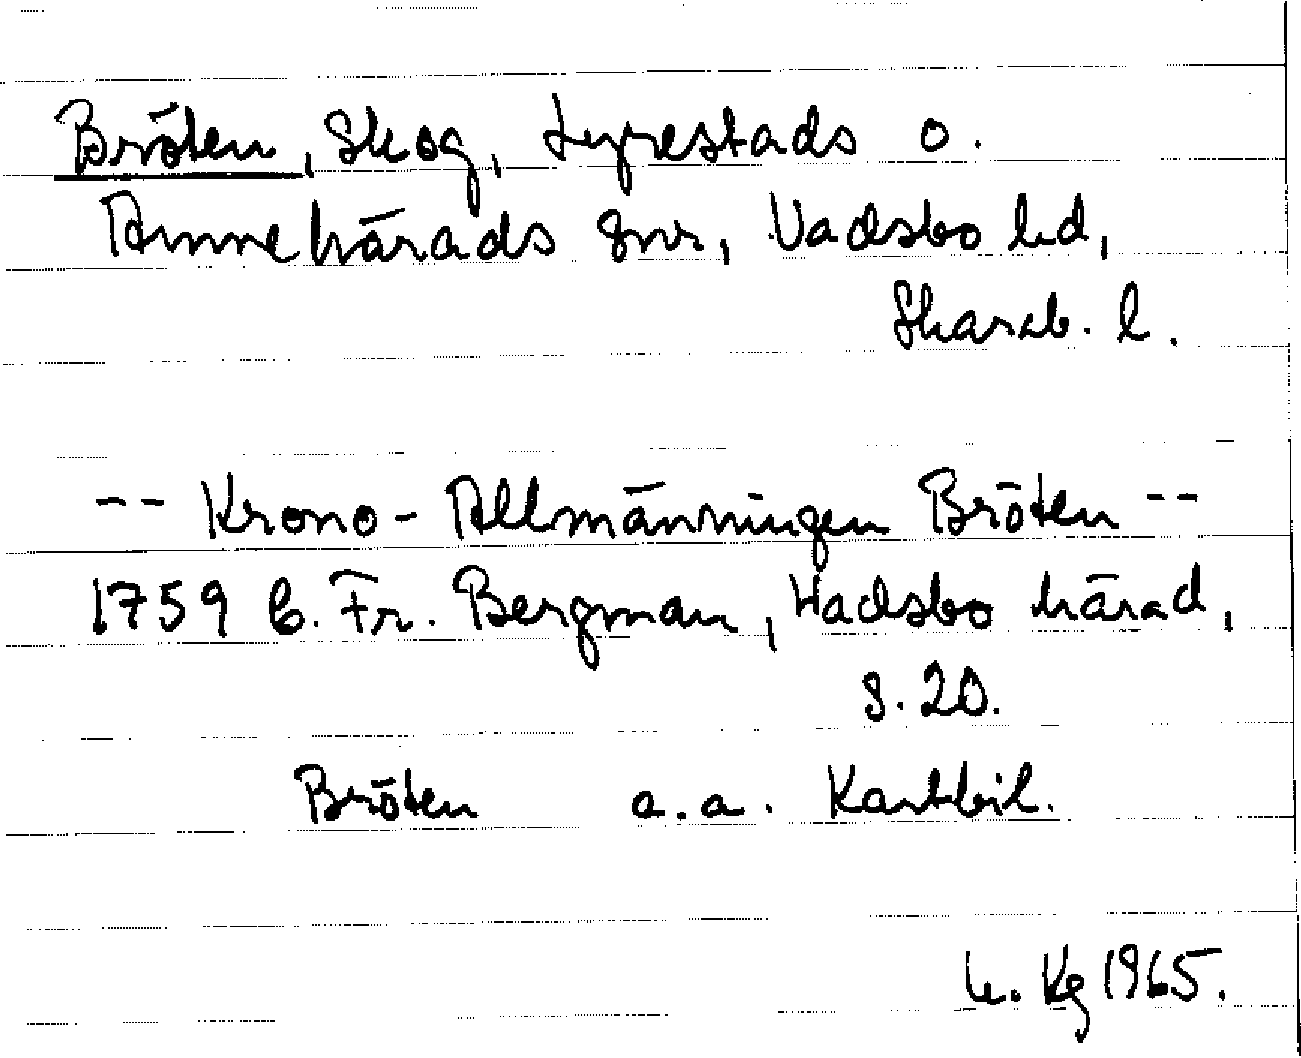 Bröten, Skog, Lyrestads o.
Amnehärads snr, Vadsbo hd,
Skarab. l.
-- Krono-Allmänningen Bröten --
1759 C. Fr. Bergman, Wadsbo härad,
s. 20.
Bröten a.a. Kartbil.
Kg 1965.